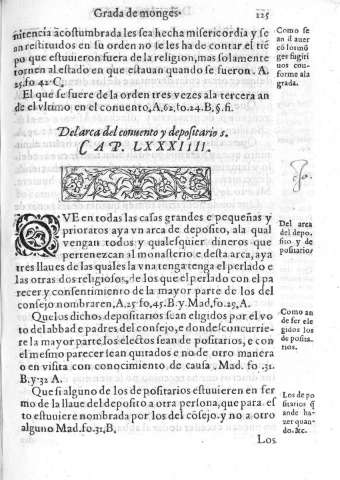 Grada de monges. 125
nitencia acostumbrada les sea hecha misericordia y se
an restituidos en su orden no se les ha de contar el tiē
po que estuuieron fuera de la religion, mas solamente
tornen al estado en que estauan quando se fueron. A.
25. fo 42. C.
El que se fuere de la orden tres vezes ala tercera an
de el vltimo en el conuento, A, 62, fo. 24. B, §. fi.
Como se
an d auer
cō losmō
ges fugiti
uos con-
forme ala
grada.
Del arca del conuento y depositario s.
CAP. LXXXIIII.
QVE en todas las casas grandes e pequeñas y
prioratos aya vn arca de deposito, ala qual
vengan todos y qualesquier dineros que
pertenezcan al monasterio e desta arca, aya
tres llaues de las quales la vna tenga tenga el perlado e
las otras dos religiosos, de los que el perlado con el pa
recer y consentimiento de la mayor parte de los del
consejo nombraren, A, 25. fo, 45. B. y. Mad, fo. 29, A.
Del arca
del depo.
sito y de
positarios
Que los dichos depositarios sean eligidos por el vo
to del abbad e padres del consejo, e donde concurrie-
re la mayor parte los electos sean de positarios, e con
el mesmo parecer sean quitados e no de otro manera
o en visita con conocimiento de causa. Mad. fo. 31.
B. y. 32 A.
Como an
de ser ele
gidos los
de posita.
rios.
Que si alguno de los de positarios estuuieren en fer
mo de la llaue del deposito a otra persona, que para es
to estuuiere nombrada por los del cōsejo. y no a otro
alguno Mad. fo. 31, B.
Los de po
sitarios q̄
ande ha-
zer quan-
do. &c.
Los